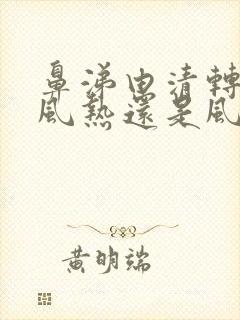 鼻涕由清轉
風熱還是風
黃明端